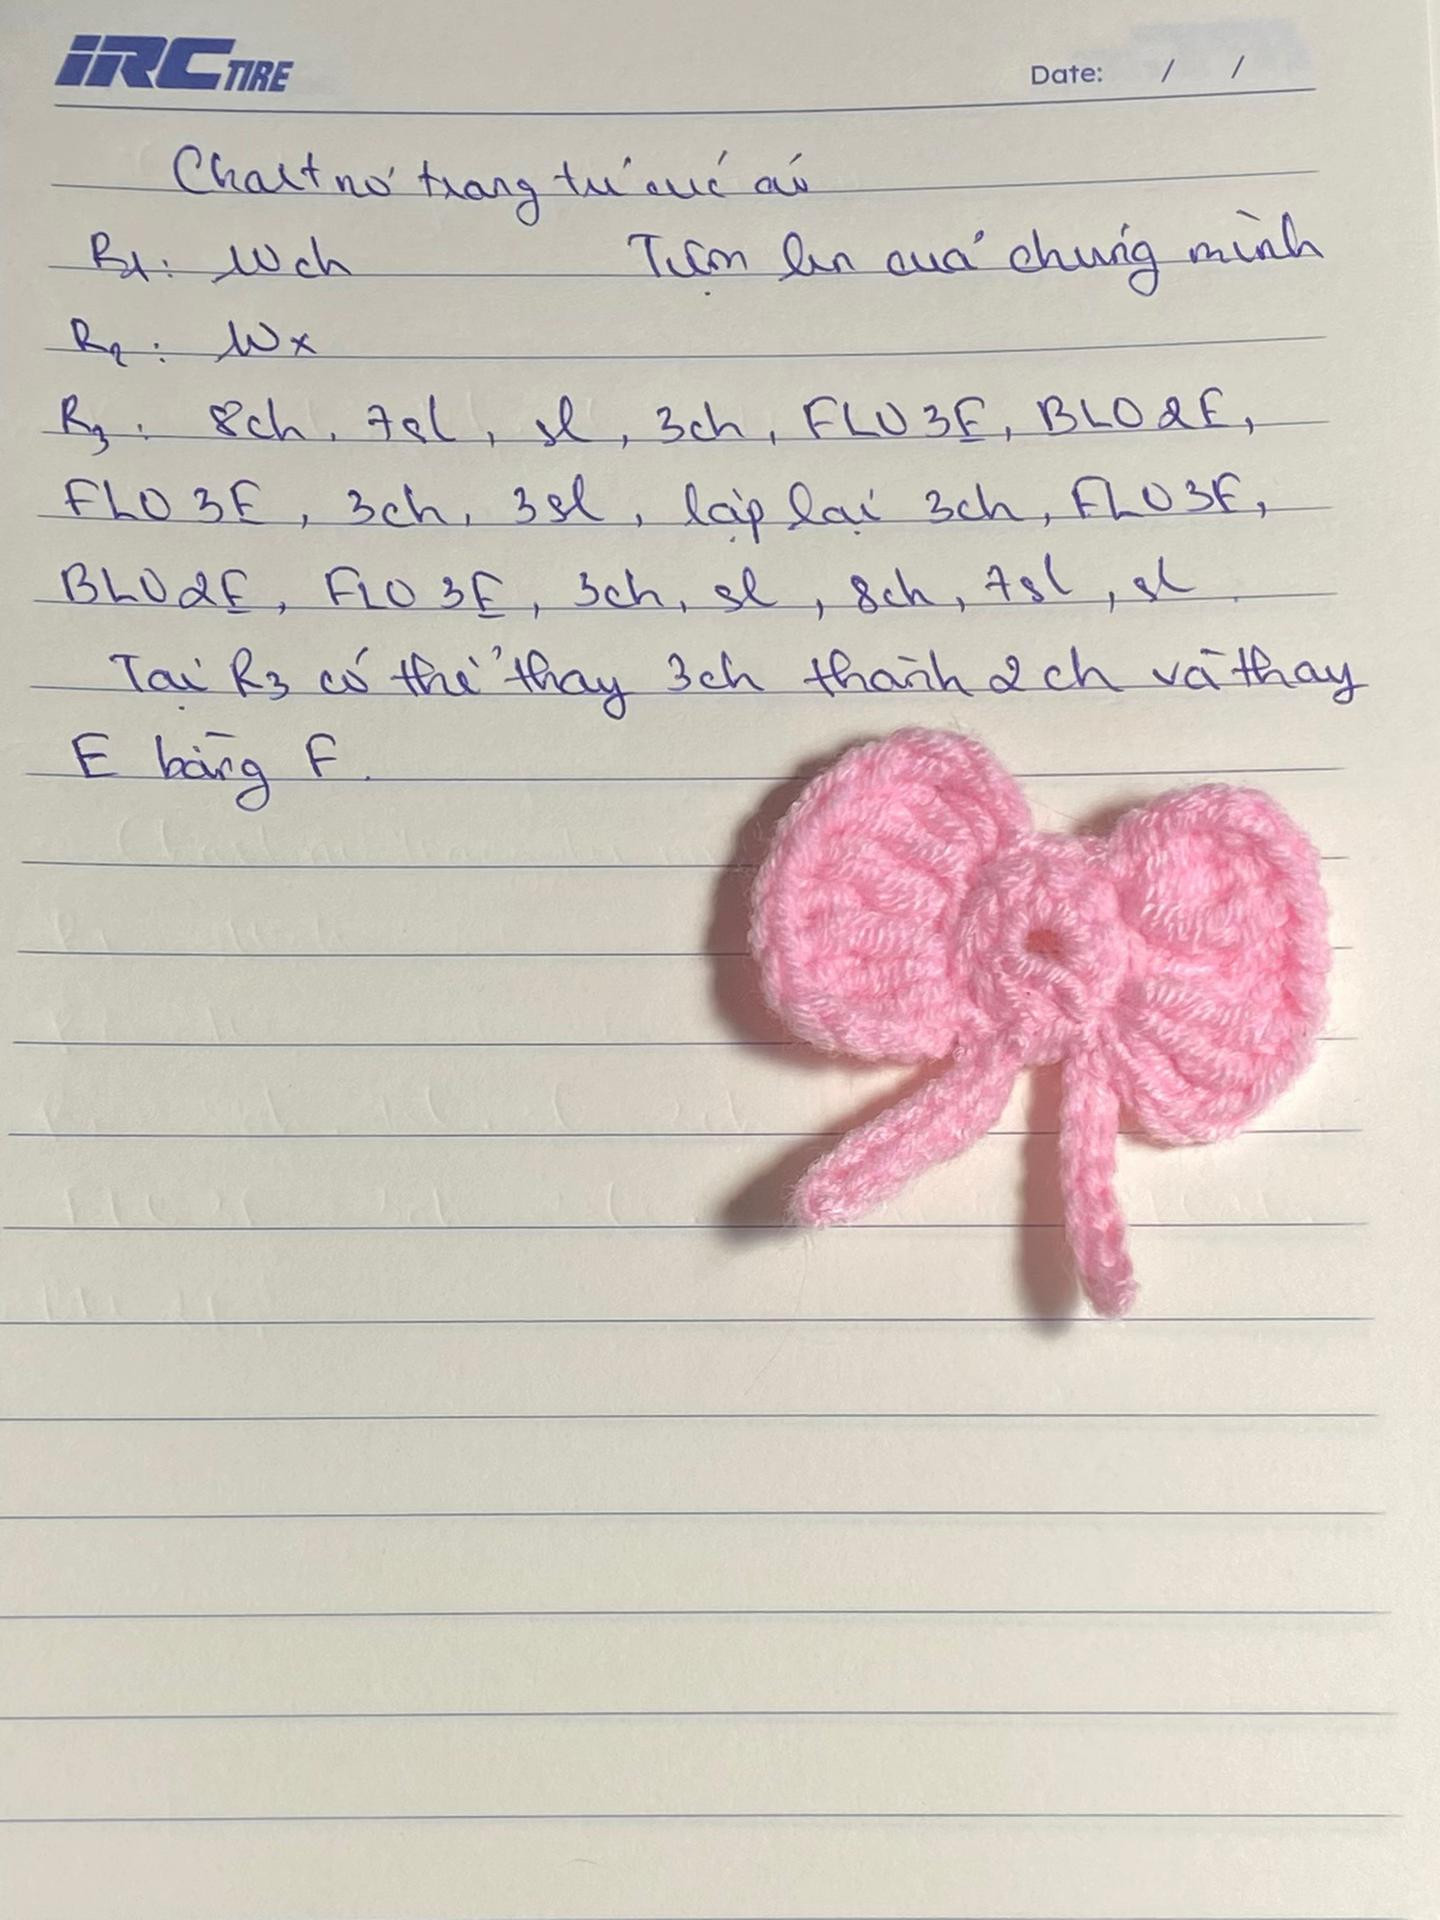 iRC TIRE Date: / /
Chart nơ trang trí cúc áo
R1: 10ch Tiệm len của chúng mình
R2: 10x
R3: 8ch, 7sl, sl, 3ch, FLO3E, BLO2E,
FLO3E, 3ch, 3sl, lặp lại 3ch, FLO3E,
BLO2E, FLO3E, 3ch, sl, 8ch, 7sl, sl.
Tại R3 có thể thay 3ch thành 2ch và thay
E bằng F.